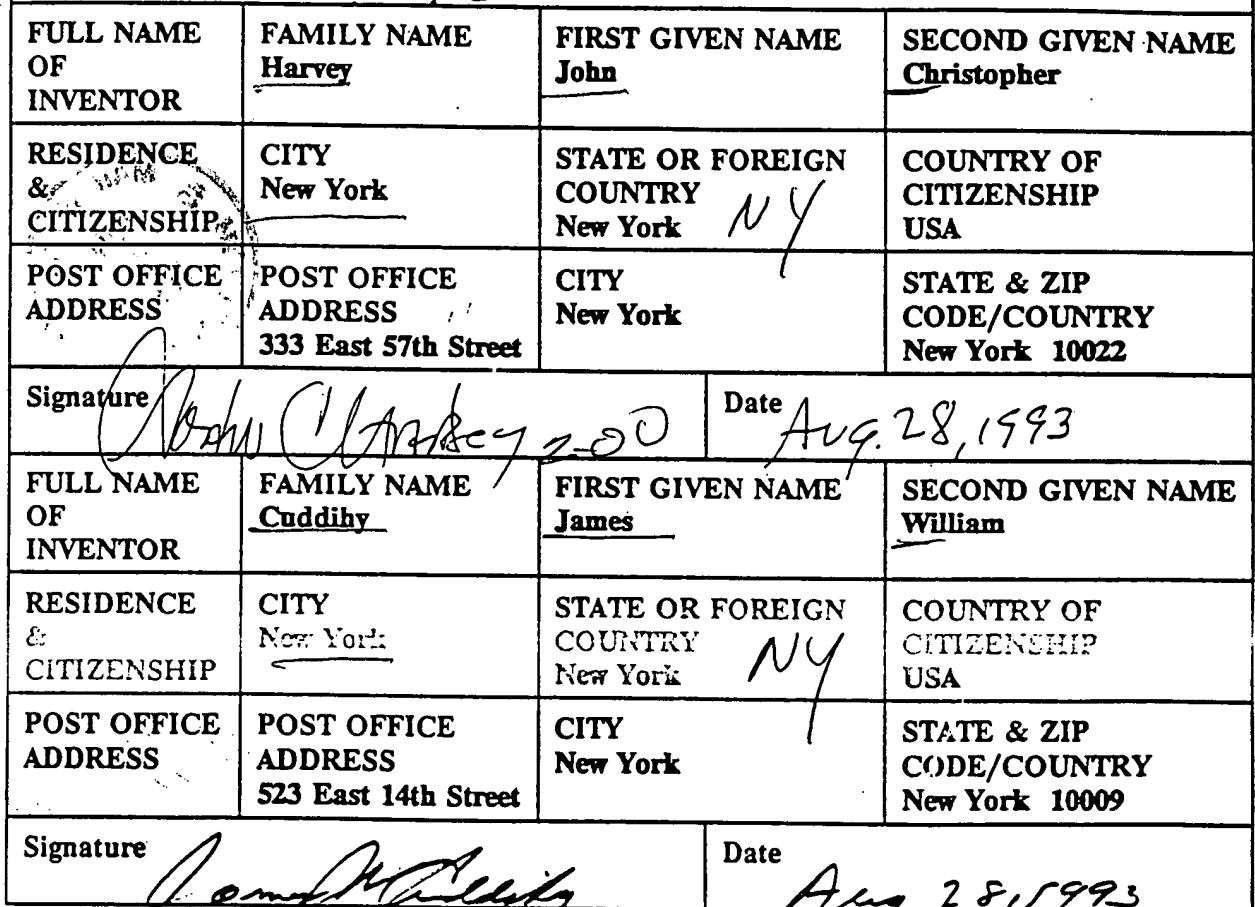 FULL NAME OF INVENTOR
FAMILY NAME
Harvey
FIRST GIVEN NAME
John
SECOND GIVEN NAME
Christopher
RESIDENCE & CITIZENSHIP
CITY
New York
STATE OR FOREIGN COUNTRY
New York NY
COUNTRY OF CITIZENSHIP
USA
POST OFFICE ADDRESS
POST OFFICE ADDRESS
333 East 57th Street
CITY
New York
STATE & ZIP CODE/COUNTRY
New York 10022
Signature
Date Aug. 28, 1993
FULL NAME OF INVENTOR
FAMILY NAME
Cuddihy
FIRST GIVEN NAME
James
SECOND GIVEN NAME
William
RESIDENCE & CITIZENSHIP
CITY
New York
STATE OR FOREIGN COUNTRY
New York NY
COUNTRY OF CITIZENSHIP
USA
POST OFFICE ADDRESS
POST OFFICE ADDRESS
523 East 14th Street
CITY
New York
STATE & ZIP CODE/COUNTRY
New York 10009
Signature
Date Aug 28, 1993